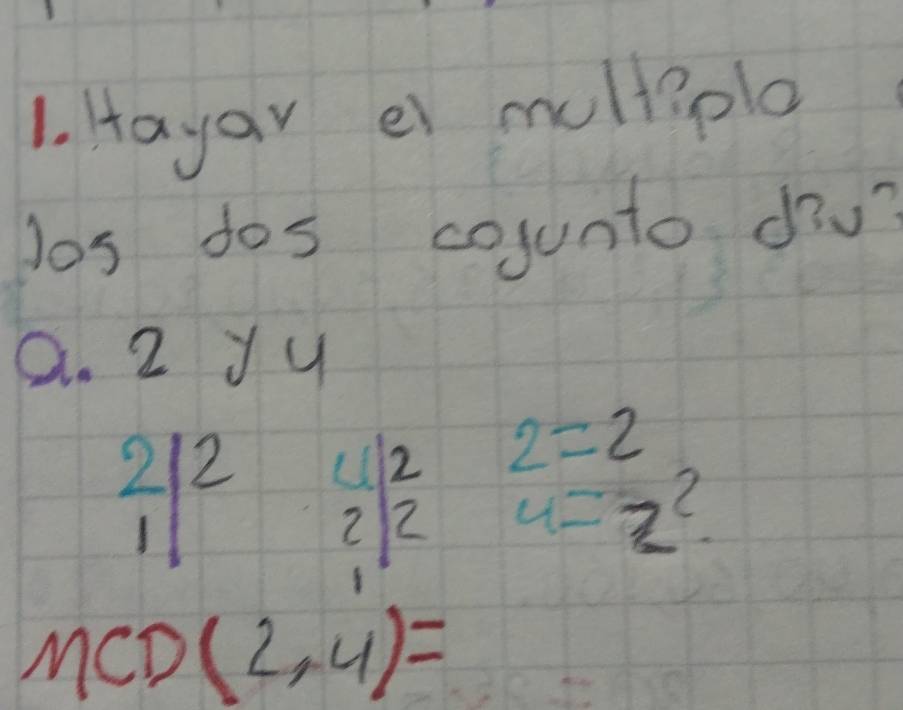 1. Hayar el multiplo
los dos cojunto
a. 2 y 4
2|2 4|2 2=2
1| 2|2 4=2²
1
MCD(2,4)=